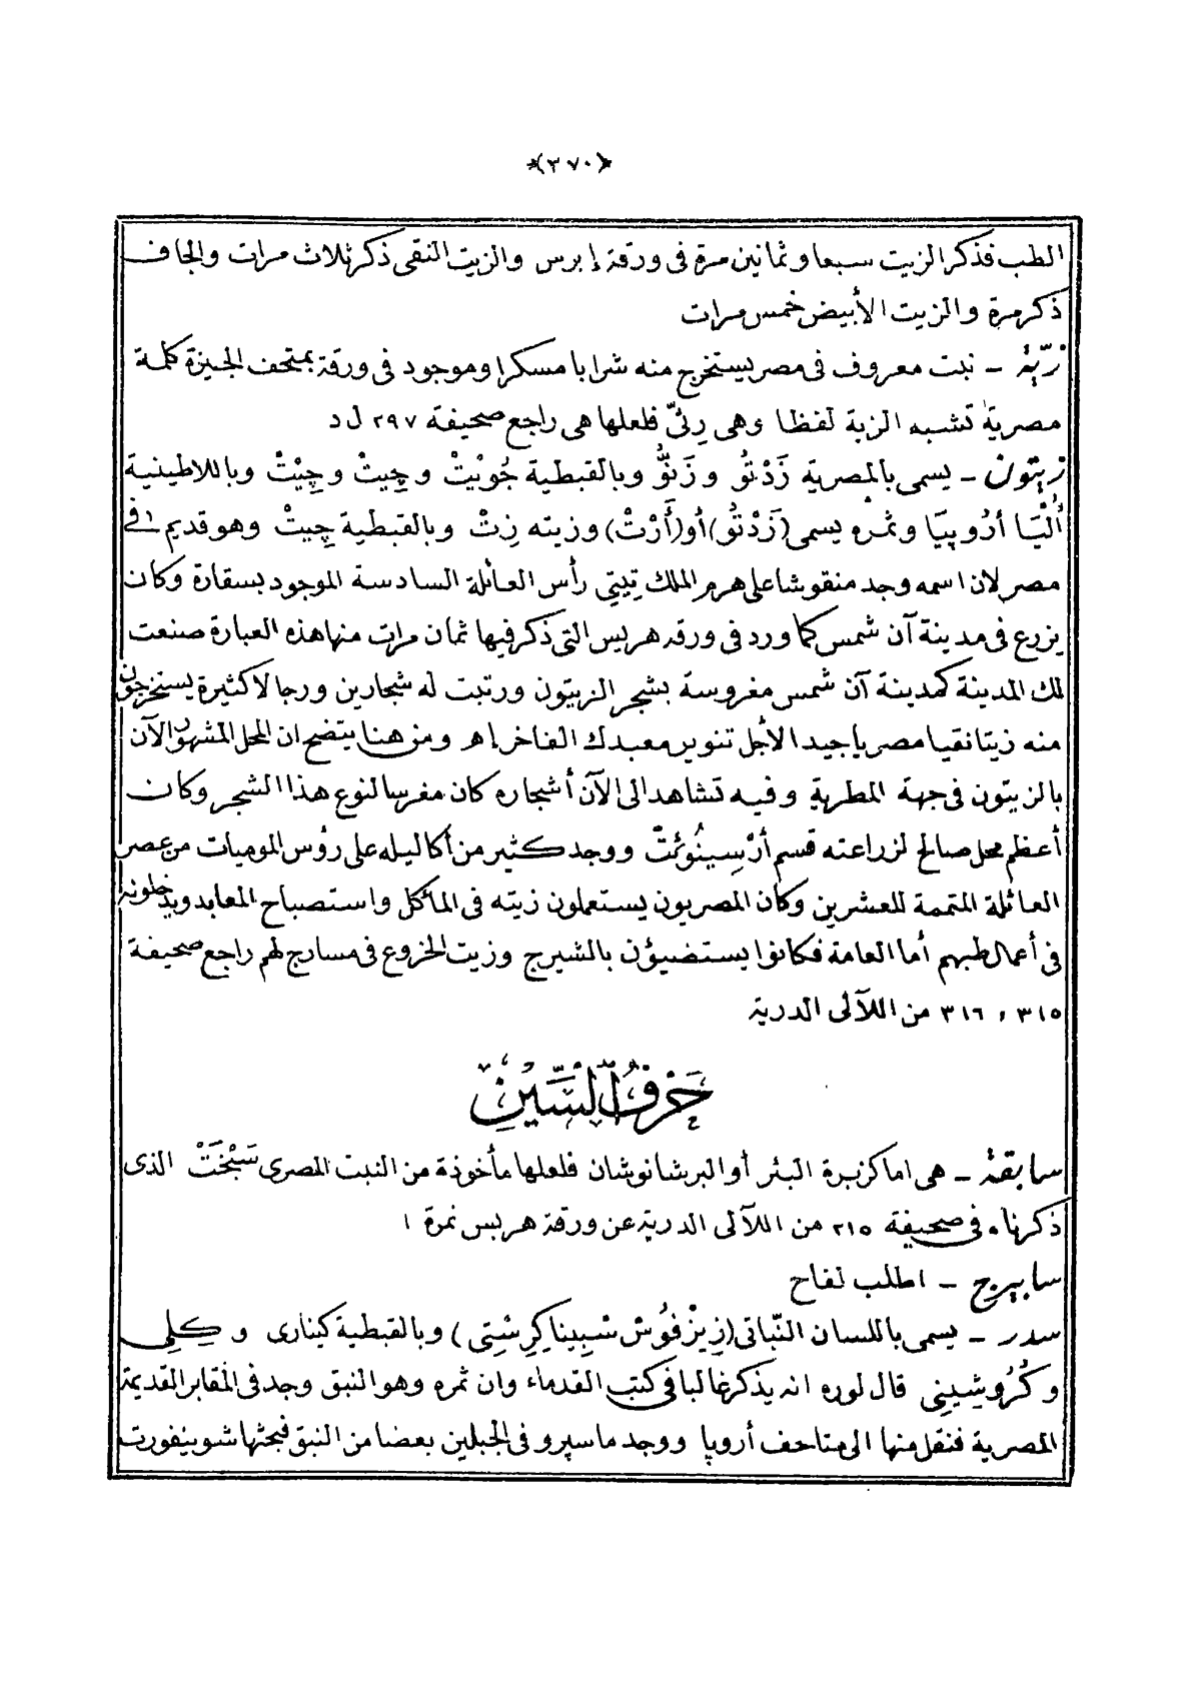 ﴿٣٧٠﴾
الطب فذكر الزيت سبعا وثمانين مرة فى ورقة إبرس والزيت النقى ذكر ثلاث مرات والجاف
ذكر مرة والزيت الأبيض خمس مرات
زِبّة – نبت معروف فى مصر يستخرج منه شرابا مسكرا وموجود فى ورقة بمتحف الجيزة كلمة
مصرية تشبه الزبة لفظا وهى فلعلها هى راجع صحيفة ٢٩٧ ل د
زيتون – يسمى بالمصرية زَدْتُو وزَتُّو وبالقبطية جُوِيْتْ وجِيتْ وجِيْتْ وباللاطينية
أُلْيَا أرُوپيَا وثمره يسمى (زَدْتُو) أو (أَرْتْ) وزيته زِتْ وبالقبطية جِيتْ وهو قديم فى
مصر لان اسمه وجد منقوشا على هرم الملك تِيتِى رأس العائلة السادسة الموجود بسقارة وكان
يزرع فى مدينة آن شمس كما ورد فى ورقه هريس التى ذكر فيها ثمان مرات منها هذه العبارة صنعت
لك المدينة كمدينة آن شمس مغروسة بشجر الزيتون ورتبت له شجارين ورجالا كثيرة يستخرجون
منه زيتا نقيا مصريا جيدا لأجل تنوير معبدك الفاخر إهـ ومن هنا يتضح ان المحل المشهور الآن
بالزيتون فى جهة المطرية وفيه تشاهد الى الآن أشجاره كان مغرسا لنوع هذا الشجر وكان
أعظم محل صالح لزراعته قسم أرْسِينُوئتْ ووجد كثير من أكاليله على رؤس الموميات من عصر
العائلة المتممة للعشرين وكان المصريون يستعملون زيته فى المآكل واستصباح المعابد ويدخلونه
فى أعمال طبهم أما العامة فكانوا يستضيؤن بالشيرج وزيت الخروع فى مسارج لهم راجع صحيفة
٣١٥ و ٣١٦ من اللآلى الدرية
حَرْفُ السِّينِ
سابقة – هى اما كزبرة البئر أو البرشانوشان فلعلها مأخوذة من النبت المصرى سَبْخَتْ الذى
ذكرناه فى صحيفة ٢١٥ من اللآلى الدرية عن ورقة هريس نمرة ١
سابيرج – اطلب لفاح
سدر – يسمى باللسان النّباتى (زِيزْفُوُسْ سْبِينا كِرِسْتِى) وبالقبطية كينارى و كِلِى
وكُرُوشينِى قال لوره انه يذكر غالبا فى كتب القدماء وان ثمره وهو النبق وجد فى المقابر القديمة
المصرية فنقل منها الى متاحف أروپا ووجد ماسپرو فى الجبلين بعضا من النبق فبحثها شوينفورت